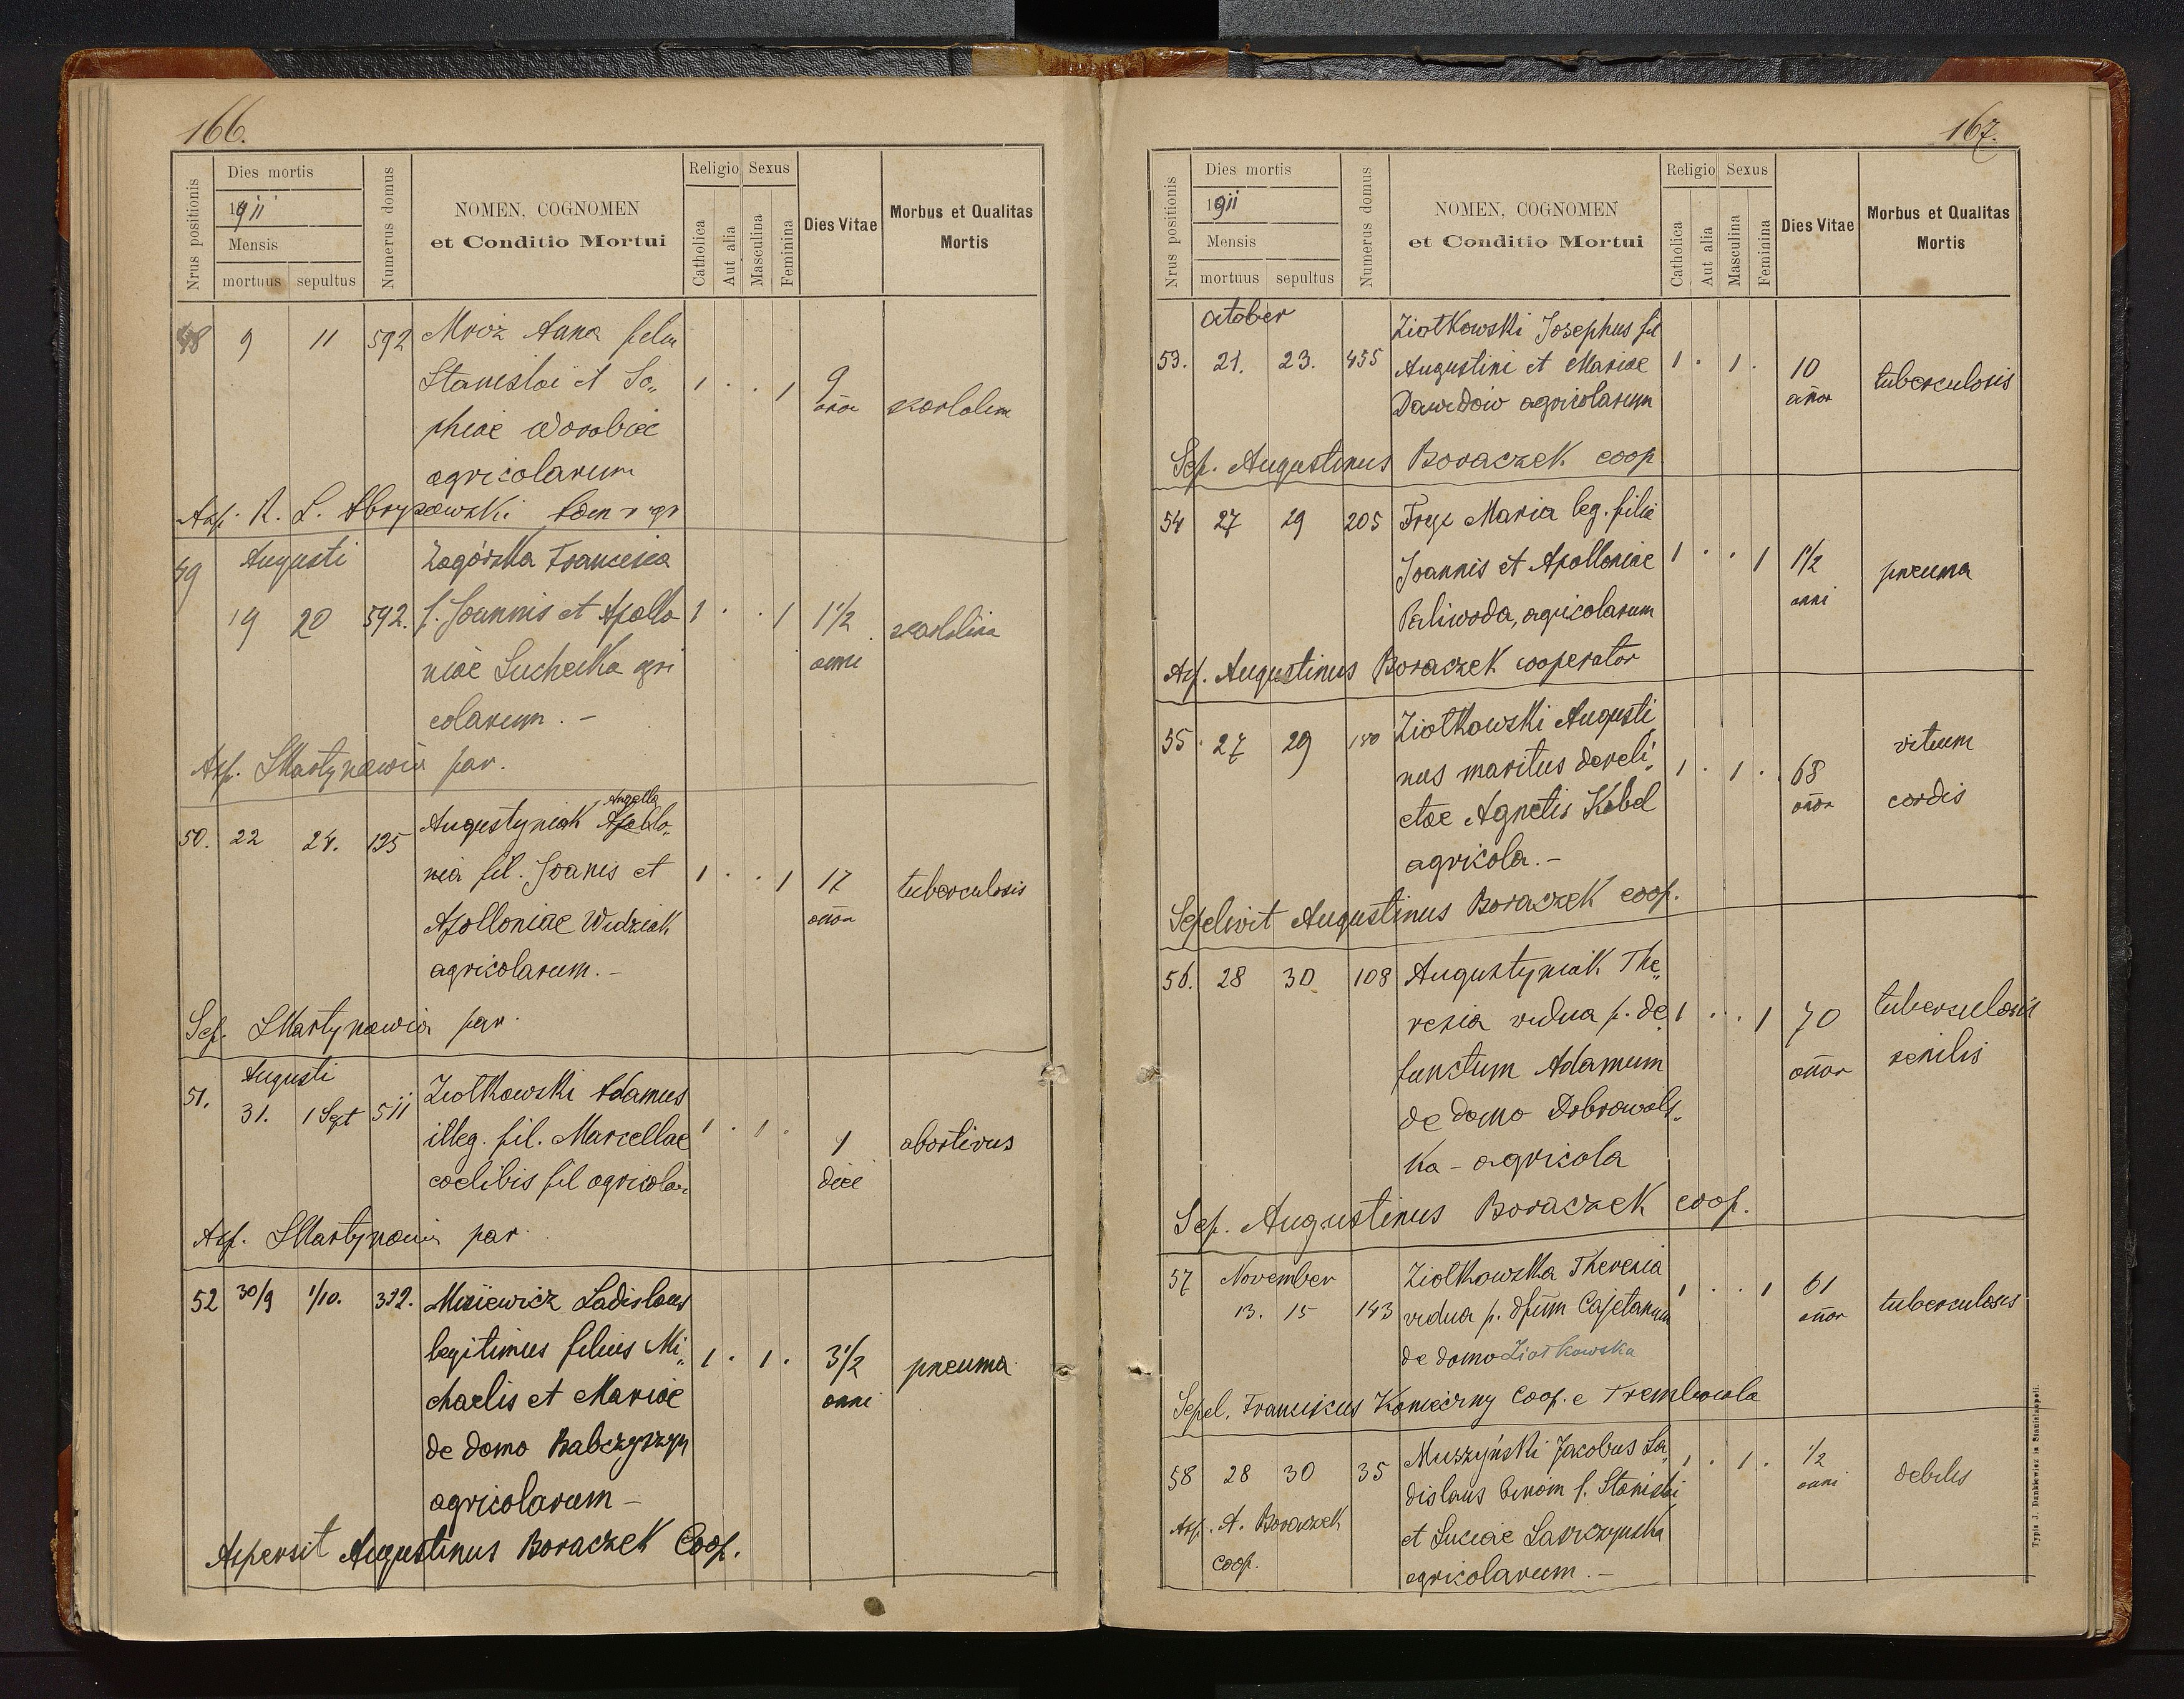 166.
Nrus positionis
Dies mortis
1911
Mensis
mortuus sepultus
Numerus domus
NOMEN, COGNOMEN
et Conditio Mortui
Religio
Catholica
Aut alia
Sexus
Masculina
Feminina
Dies Vitae
Morbus et Qualitas
Mortis
48 9 11 592 Mróz Anna filia
Stanislai et So„
phiae Worobiec
agricolarum
1 . . 1 9
anor
Asp. R. L.
49 Augusti
19 20 592. Zagórska Francisca
f. Joannis et Apollo
niae Suchecka agri
colarum . –
1 . . 1 1 1/2
anni
Asp. SMartynowicz par.
50. 22 24. 125 Augustyniak Apollo„
Angella
nia fil. Joanis et
Apolloniae Widziak
agricolarum. –
1 . . 1 17
anor
tuberculosis
Sep. SMartynowicz par.
51. Augusti
31. 1 Sept 511 Ziołkowski Adamus
illeg. fil. Marcellae
coelibis fil agricolar
1 . 1 . 1
diei
abortivus
Asp. SMartynowicz par.
52 30/9 1/10. 332. Misiewicz Ladislaus
legitimus filius Mi„
chaelis et Mariae
de domo Babczyszyn
agricolarum –
1 . 1 . 3 1/2
anni
pneuma
Aspersit Augustinus Boraczek Coop.
167.
Nrus positionis
Dies mortis
1911
Mensis
mortuus sepultus
Numerus domus
NOMEN, COGNOMEN
et Conditio Mortui
Religio
Catholica
Aut alia
Sexus
Masculina
Feminina
Dies Vitae
Morbus et Qualitas
Mortis
October
53. 21. 23. 455 Ziołkowski Josephus fil
Augustini et Mariae
Dawidów agricolarum
1 . 1 . 10
añor
tuberculosis
Sep. Augustinus Boraczek coop
54 27 29 205 Freje Maria leg. filia
Joannis et Apolloniae
Paliwoda, agricolarum
1 . . 1 1 1/2
anni
pneuma
Asp. Augustinus Boraczek cooperator
55 27 29 180 Ziołkowski Augusti„
nus maritus dereli„
ctae Agnetis Kobel
agricola. –
1 . 1 . 68
anor
vitium
cordis
Sepelivit Augustinus Boraczek coop.
56. 28 30 108 Augustyniak The„
resia vidua p. de„
functum Adamum
de domo Dobrowols„
ka – agricola
1 . . 1 70
añor
tuberculosis
senilis
Sep. Augustinus Boraczek coop.
57 November
13. 15 143 Ziołkowska Theresia
vidua p. dfum Cajetanum
de domo Ziołkowska
1 . . 1 61
añor
tuberculosis
Sepel. Franciscus Konieczny Coop. e Trembowla
58 28 30 35 Muszyński Jacobus La„
dislaus binom f. Stanislai
et Luciae Lasczynska
agricolarum. –
1 . 1 . 1/2
anni
debilis
Asp. A. Boraczek
coop.
Typis J. Dankiewicz in Stanislaopoli.